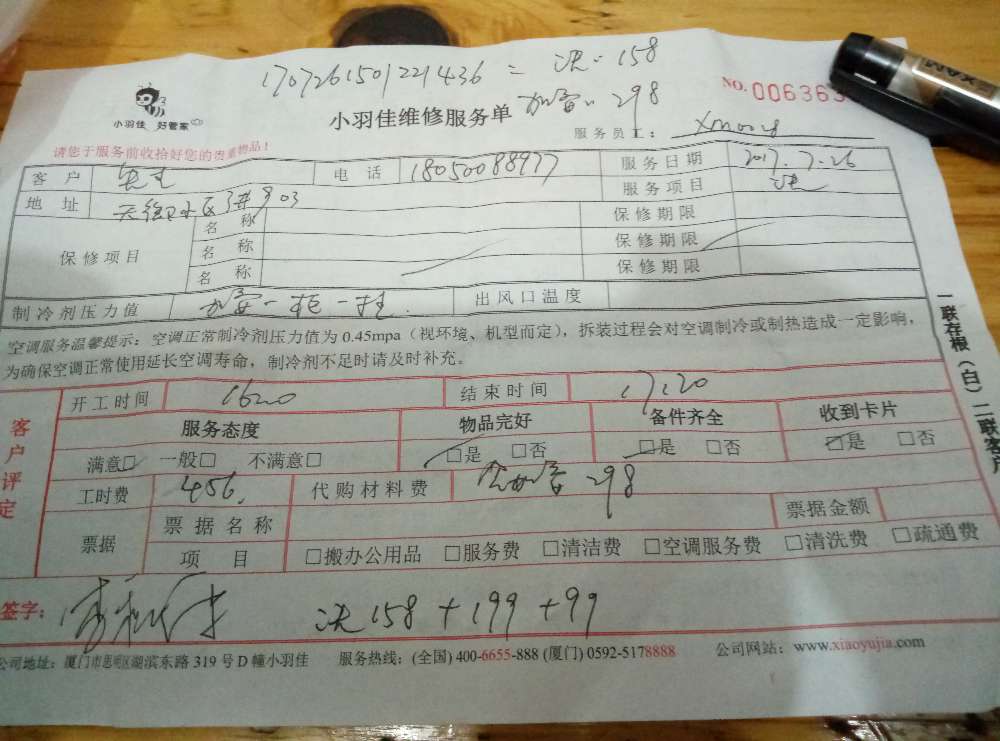 1707261501221436 = 洗.158
小羽佳 好管家
小羽佳维修服务单 加雪.. 298
NO. 00636
服务员工:
请您于服务前收拾好您的贵重物品!
客 户 电 话 18050088977 服务日期 2017.7.26
地 址 903 服务项目 洗
保修项目 名 称 保修期限
名 称 保修期限
名 称 保修期限
制冷剂压力值 加雪一柜一挂 出风口温度
空调服务温馨提示:空调正常制冷剂压力值为 0.45mpa(视环境、机型而定),拆装过程会对空调制冷或制热造成一定影响,
为确保空调正常使用延长空调寿命,制冷剂不足时请及时补充。
客户评定
开工时间 1620 结束时间 17:20
服务态度 物品完好 备件齐全 收到卡片
满意□ 一般□ 不满意□ □是 □否 □是 □否 □是 □否
工时费 456. 代购材料费 加雪 298
票据 票据名称 票据金额
项 目 □搬办公用品 □服务费 □清洁费 □空调服务费 □清洗费 □疏通费
签字: 洗158+199+99
公司地址:厦门市思明区湖滨东路 319 号 D 幢小羽佳 服务热线:(全国) 400-6655-888 (厦门) 0592-5178888 公司网站:www.xiaoyujia.com
一联存根(白)二联客户